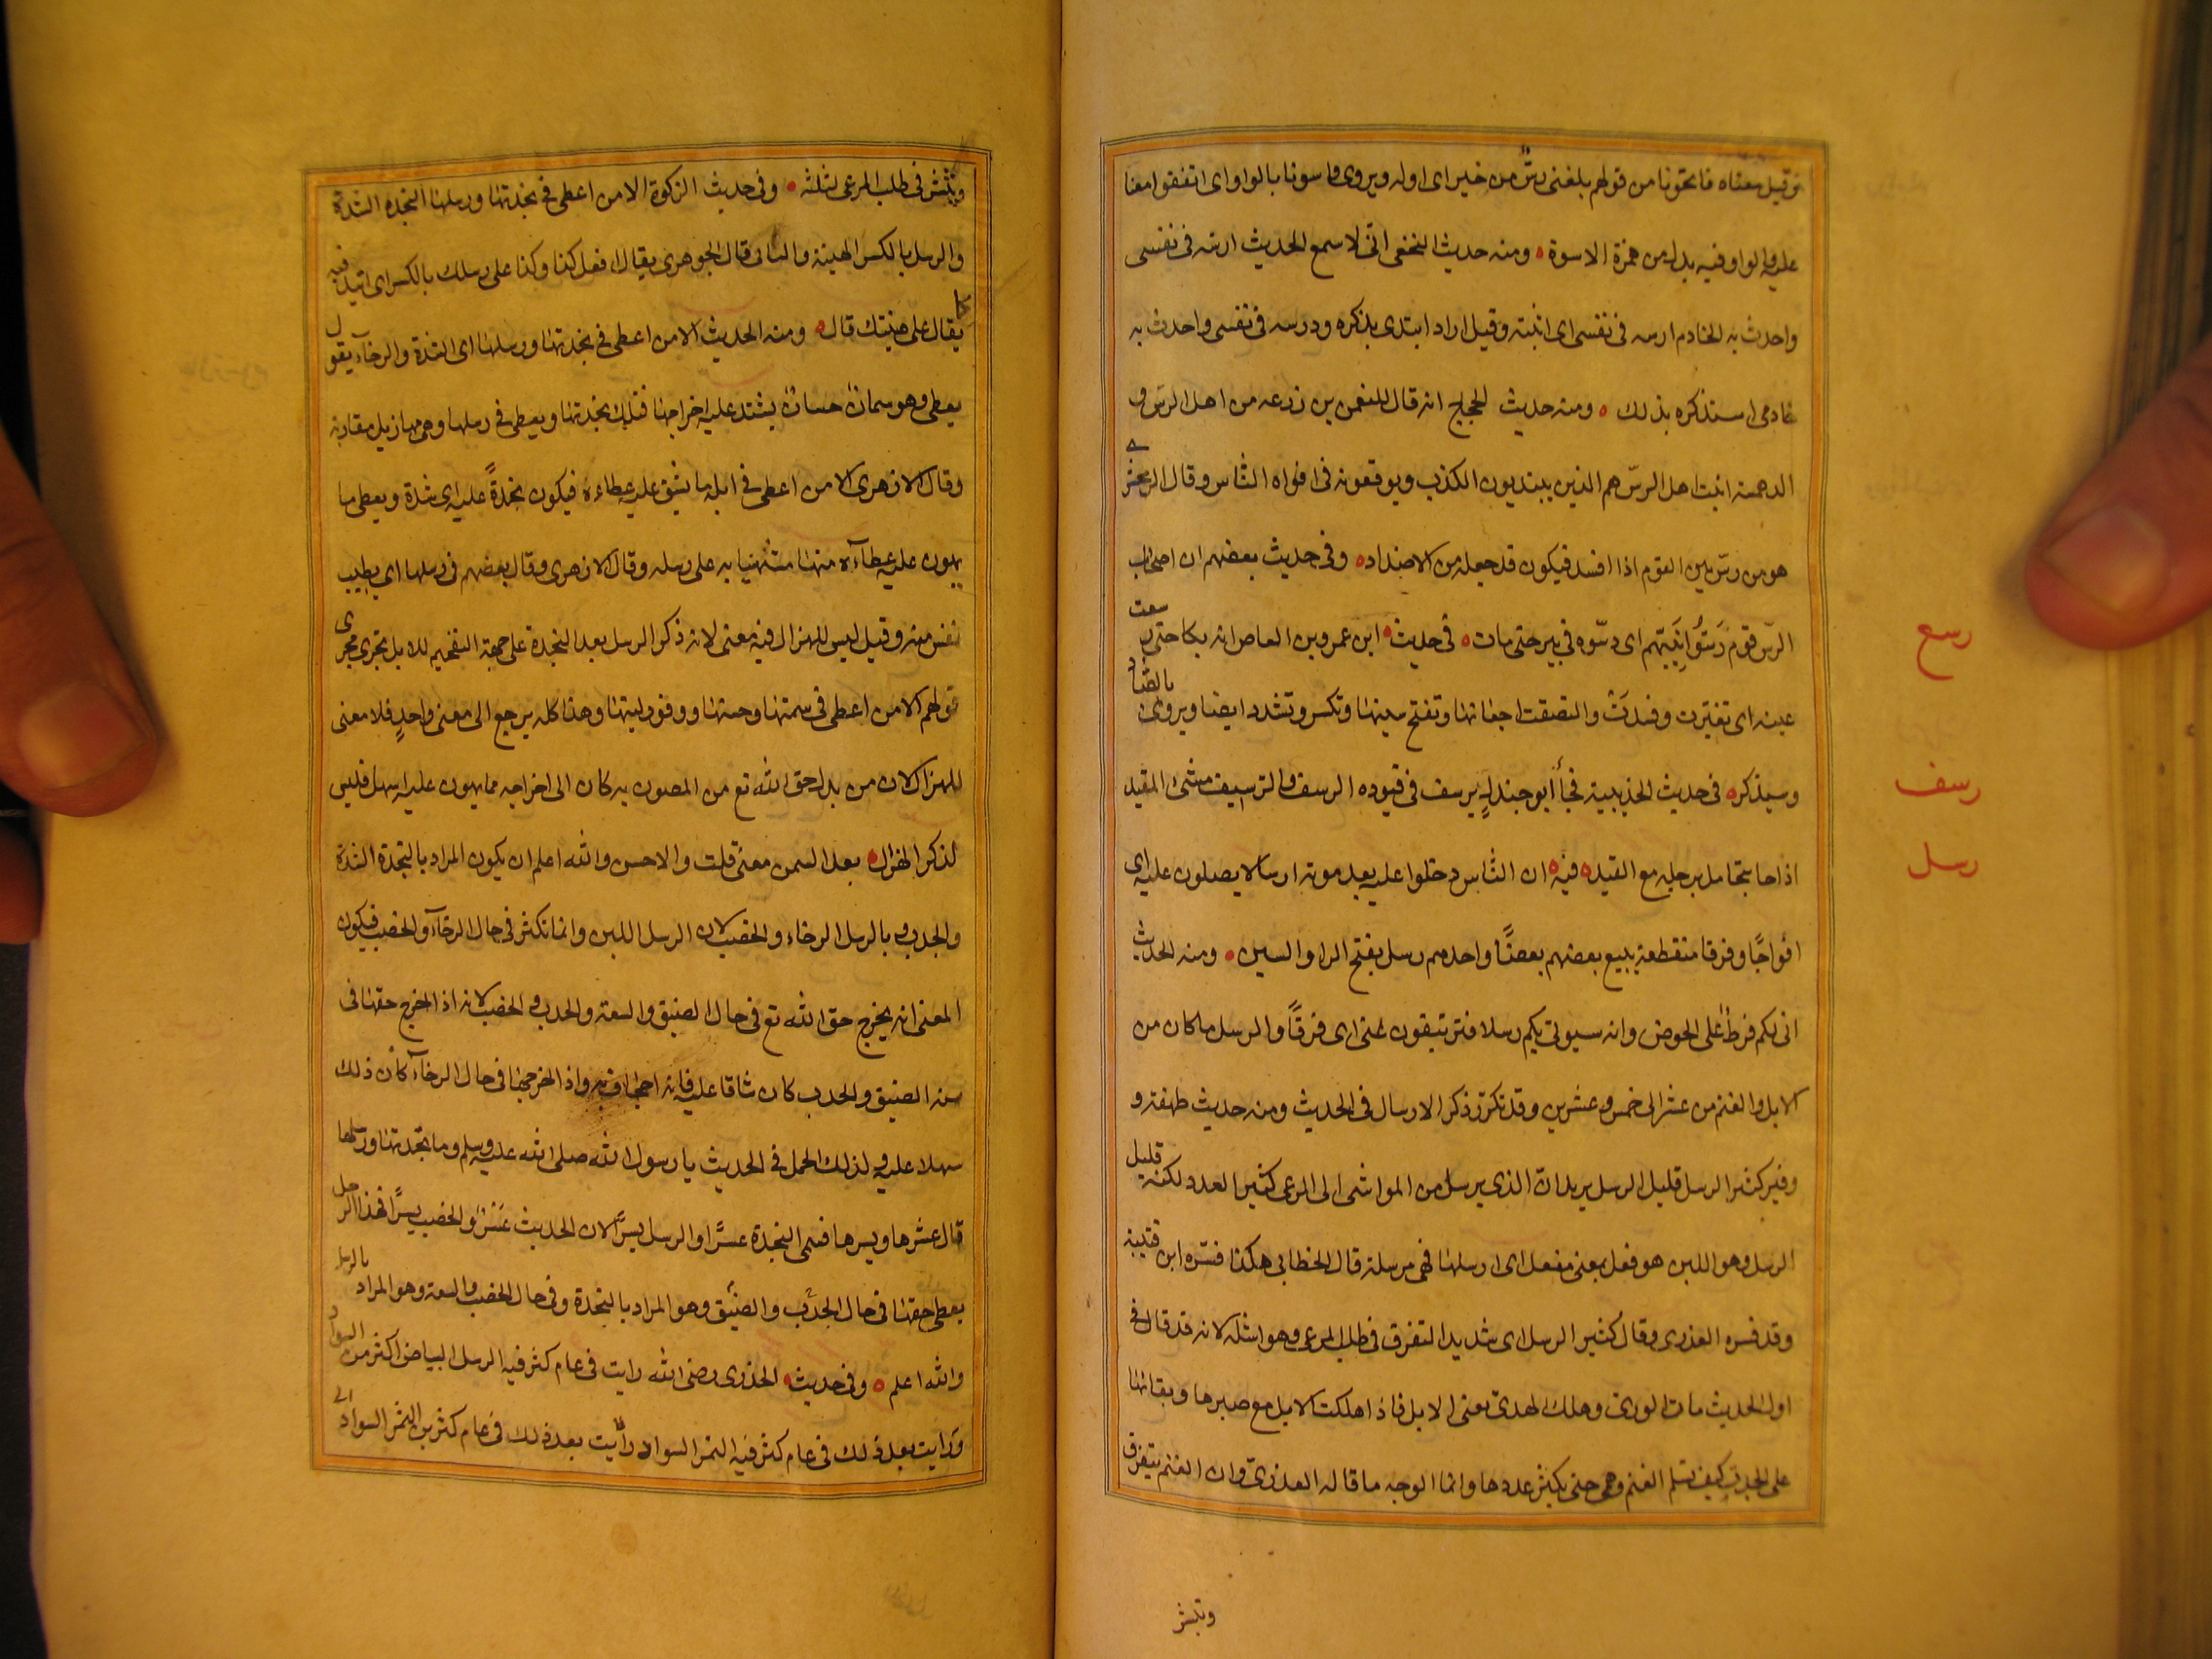 وقيل معناه فاتحونا من قولهم بلغنى رسٌّ من خير اى اوله ويروى واسونا بالواو اى اتفقوا معنا
عليه والواو فيه بدل من همزة الاسوة ومنه حديث النخعى انى لا سمع الحديث ارسه فى نفسى
واحدث به الخادم ارسه فى نفسى اى اثبته وقيل اراد ابتدى بذكره ودرسه فى نفسى واحدث به
خادمى استذكره بذلك ومنه حديث الحجاج انه قال للنعمن بن زرعه من اهل الرس و
الدهمسة انت اهل الرسّ هم الذين يبتديون الكذب ويوقعونه فى افواه الناس وقال الزمخشرے
هو من رسّ بين القوم اذا افسد فيكون قد جعله من الاضداد وفى حديث بعضهم ان اصحاب
رسع
الرّس قوم رَسّوُا نَبِيّهم اى دسّوه فى بير حتى مات فى حديث ابن عمرو بن العاص انه بكا حتى رسعت
عينه اى تغيّرت وفسدَتْ والتصقت اجفانها وتفتح سينها وتكسر وتشدد ايضا ويروى بالصاد
رسف
وسيذكر فى حديث الحذيبية فجأ أبو جندلٍ يرسف فى قيوده الرسف والترسيف مشى المقيد
رسل
اذا جا يتحامل برجله مع القيد فيه ان الناس دخلوا عليه بعد موته ارسالا يصلون عليه اى
افواجًا وفرقا منقطعة يبيع بعضهم بعضًا واحدهم رسل بفتح الرا والسين ومنه الحديث
انى لكم فرط على الحوض وانه سيوتى بكم رسلا فترتيقون عنى اى فرقًا والرسل ما كان من
الابل والغنم من عشر الى خمس وعشرين وقد تكرّر ذكر الارسال فى الحديث ومنه حديث طهفة و
وفير كثير الرسل قليل الرسل يريد انّ الذى يرسل من المواشى الى الرعى كثير العدد لكنه قليل
الرسل وهو اللبن هو فعل بمعنى مفعل اى ارسلها فهى مرسلة قال الخطابى هكذا فسّره ابن قتيبة
وقد فسره العذرى وقال كثير الرسل اى شديد التفرق فى طلب المرعى وهو اشله لانه قد قال فى
اول الحديث مات الورىّ وهلك الهدىّ يعنى الابل فاذا هلكت الابل مع صبرها وبقائها
على الجدب كيف تسلم الغنم وهى حتى يكثر عددها وانما الوجه ما قاله العذرىّ وان الغنم يتفرق
وتلبثر
وينتشر فى طلب المرعى لثلثه وفى حديث الزكوة الا من اعطى فى نجدتها ورسلها النجده الشدة
والرسل بالكسر الهينة والتانى قال الجوهرى يقال افعل كذا وكذا على رسلك بالكسر اى اتيد فيه
كما
يقال على هنيتك قال ومنه الحديث الا من اعطى فى نجدتها ورسلها اى الشدة والرخآ يقول
يعطى وهو سمان حسان يشتد عليه اخراجها فتلك نجدتها ويعطى فى رسلها وهى مهازيل مقاربة
وقال الازهرى الا من اعطى فى ابله ما يشق عليه عطاءه فيكون نجدةً عليه اى شدة ويعطى ما
يهون عليه عطآءه منها مستهينا به على رسله وقال الازهرى وقال بعضهم فى رسلها اى بطيب
نفس منه وقيل ليس للهزال فيه معنى لانه ذكر الرسل بعد النجدة على جهة التفخيم للابل تجرى مجرى
قولهم الا من اعطى فى سمنها وحسنها ووفور لبنها وهذا كله يرجع الى معنى واحدٍ فلا معنى
للهزال لان من بدل حق الله تع من المصون به كان الى اخراجه مما يهون عليه اسهل فليس
لذكر الهزال بعد السمن معنى قلت والاحسن والله اعلم ان يكون المراد بالنجدة الشدة
والجدب و بالرسل الرخاء والخصب لان الرسل اللبن وانما تكثر فى حال الرخآ والخصب فيكون
المعنى انه يخرج حق الله تع فى حال الضيق والسعة والجدب والخصب لانه اذا اخرج حقها فى
سنة الضيق والجدب كان شاقا عليه فانه اجحاف به واذا اخرجها فى حال الرخآ كان ذلك
سهلا عليه ولذلك الحمل فى الحديث يا رسول الله صلى الله عليه وسلم وما نجدتها ورسلها
قال عسرها ويسرها فسمى النجدة عسرًا والرسل يسرًا لان الحديث عسر والخصب يسرًا فهذا الرجل
يعطى حقها فى حال الجدب والضيق وهو المراد بالنجدة وفى حال الخصب والسعة وهو المراد بالرسل
والله اعلم وفى حديث الخذرى رضى الله رايت فى عام كثر فيه الرسل البياض اكثر من السواد
ورايت بعد ذلك فى عام كثر فيه التمر السواد رأيت بعد ذلك فى عام كثر بن التمر السواد